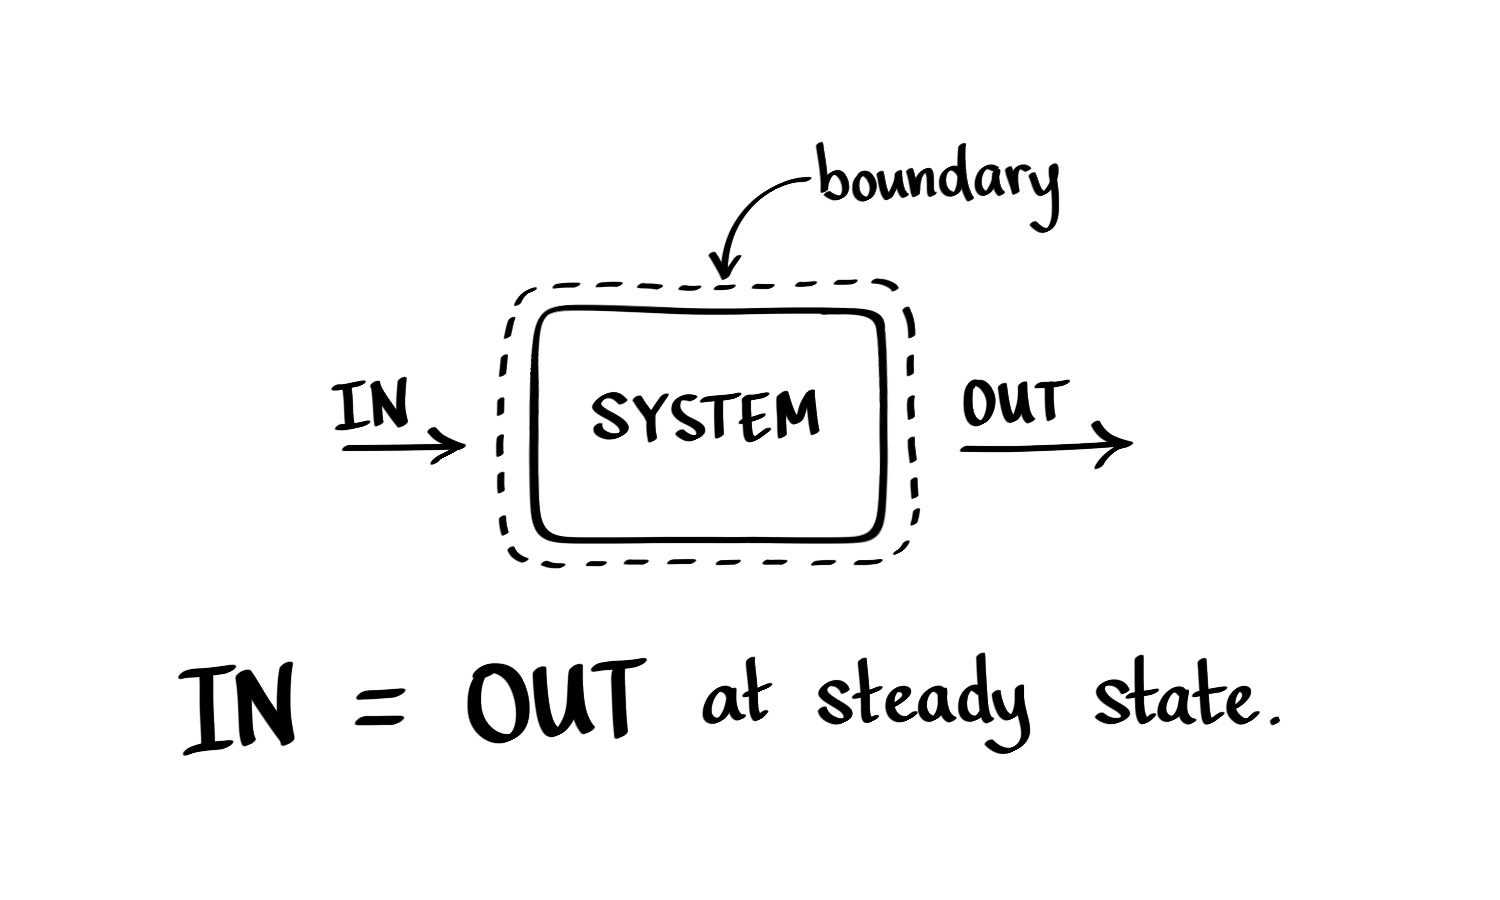 boundary
IN
SYSTEM
OUT
IN = OUT at steady state.